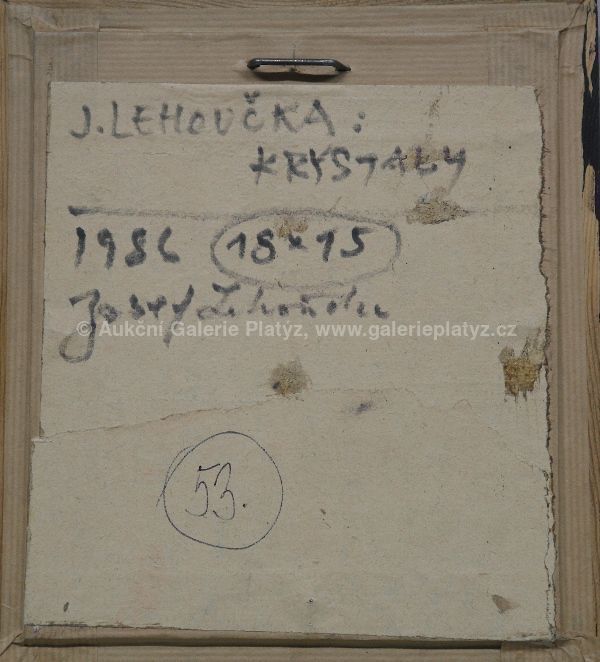 J. LEHOVČKA:
KRYSTALY
1986 18×15
Josef Lehoučka
© Aukční Galerie Platýz, www.galerieplatyz.cz
53.